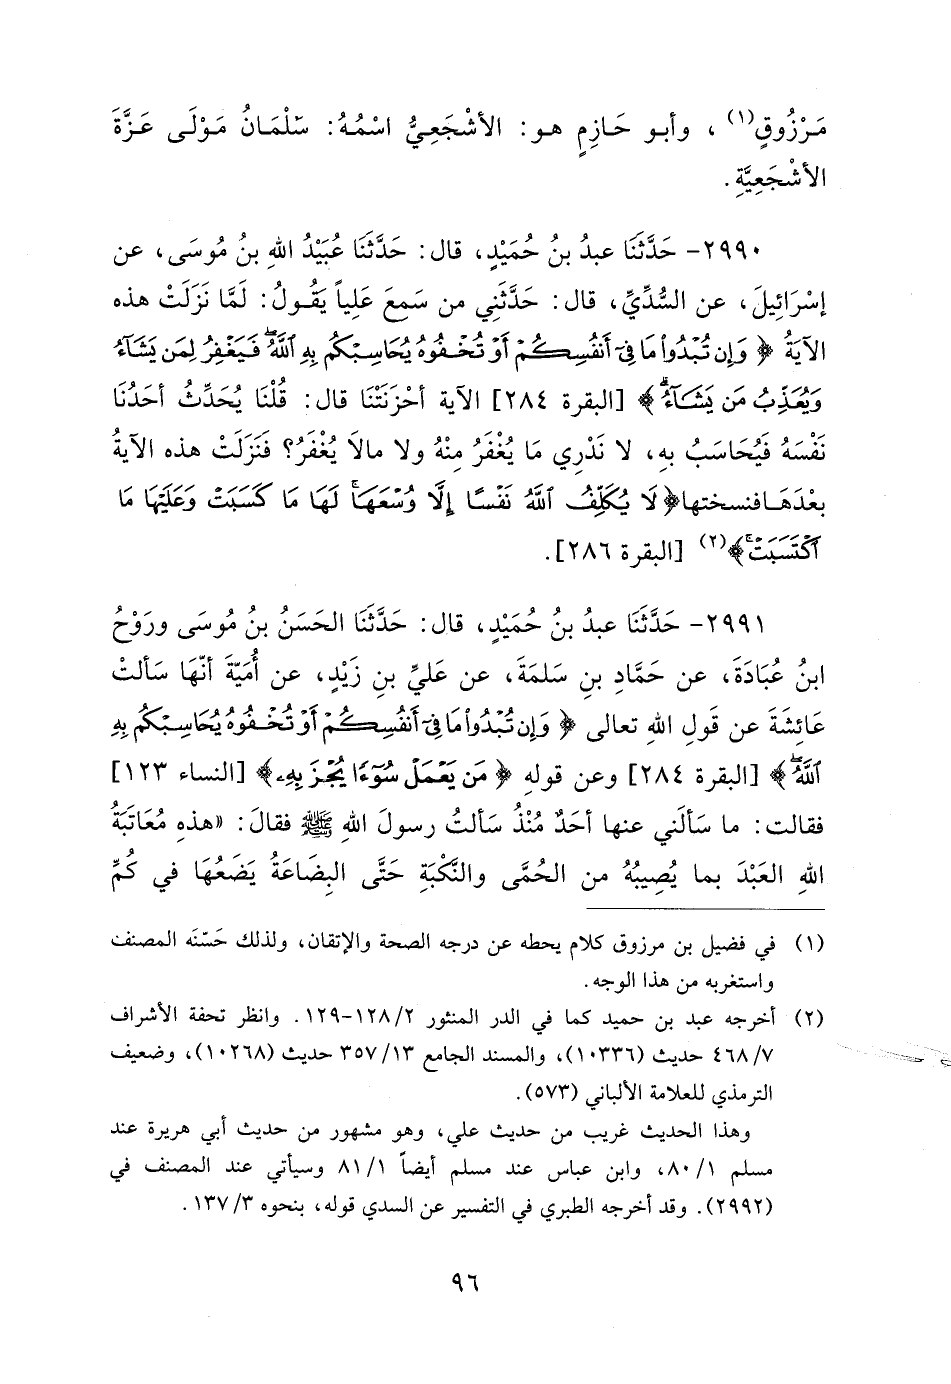 مَرْزُوقٍ(١) ، وأبو حَازِمٍ هو: الأشْجَعِيُّ اسْمُهُ: سَلْمَانُ مَوْلَى عَزَّةَ
الأشْجَعِيَّةِ .
٢٩٩٠- حَدَّثَنَا عبدُ بنُ حُمَيْدٍ، قال: حَدَّثَنَا عُبَيْدُ اللهِ بنُ مُوسَى، عن
إسْرَائِيلَ، عن السُّدِّيِّ، قال: حَدَّثَنِي من سَمِعَ عَلِياً يَقُولُ: لَمَّا نَزَلَتْ هذه
الآيَةُ ﴿ وَإِن تُبْدُوا مَا فِيٓ أَنفُسِكُمْ أَوْ تُخْفُوهُ يُحَاسِبْكُم بِهِ ٱللَّهُۖ فَيَغْفِرُ لِمَن يَشَآءُ
وَيُعَذِّبُ مَن يَشَآءُۗ ﴾ [البقرة ٢٨٤] الآية أحْزَنَتْنَا قال: قُلْنَا يُحَدِّثُ أحَدُنَا
نَفْسَهُ فَيُحَاسَبُ بهِ، لا نَدْرِي مَا يُغْفَرُ مِنْهُ ولا مالَا يُغْفَرُ؟ فَنَزَلَتْ هذه الآيةُ
بعْدَهَا فنسختها ﴿ لَا يُكَلِّفُ ٱللَّهُ نَفْسًا إِلَّا وُسْعَهَاۚ لَهَا مَا كَسَبَتْ وَعَلَيْهَا مَا
ٱكْتَسَبَتْۗ ﴾(٢) [البقرة ٢٨٦].
٢٩٩١- حَدَّثَنَا عبدُ بنُ حُمَيْدٍ، قال: حَدَّثَنَا الحَسَنُ بنُ مُوسَى ورَوْحُ
ابنُ عُبَادَةَ، عن حَمَّادِ بنِ سَلمَةَ، عن عَليِّ بنِ زَيْدٍ، عن أُمَيَّةَ أنّهَا سَألتْ
عَائِشَةَ عن قَولِ اللهِ تعالى ﴿ وَإِن تُبْدُوا مَا فِيٓ أَنفُسِكُمْ أَوْ تُخْفُوهُ يُحَاسِبْكُم بِهِ
ٱللَّهُۖ ﴾ [البقرة ٢٨٤] وعن قوله ﴿ مَن يَعْمَلْ سُوٓءًا يُجْزَ بِهِۦ ﴾ [النساء ١٢٣]
فقالت: ما سَألَني عنها أحَدٌ مُنْذُ سَألتُ رسولَ اللهِ ﷺ فقالَ: «هذهِ مُعَاتَبَةُ
اللهِ العَبْدَ بما يُصِيبُهُ من الحُمَّى والنَّكْبَةِ حَتَّى البِضَاعَةُ يَضَعُهَا في كُمِّ
(١) في فضيل بن مرزوق كلام يحطه عن درجه الصحة والإتقان، ولذلك حَسّنَه المصنف
واستغربه من هذا الوجه.
(٢) أخرجه عبد بن حميد كما في الدر المنثور ١٢٨/٢-١٢٩. وانظر تحفة الأشراف
٤٦٨/٧ حديث (١٠٣٣٦)، والمسند الجامع ٣٥٧/١٣ حديث (١٠٢٦٨)، وضعيف
الترمذي للعلامة الألباني (٥٧٣).
وهذا الحديث غريب من حديث علي، وهو مشهور من حديث أبي هريرة عند
مسلم ٨٠/١، وابن عباس عند مسلم أيضاً ٨١/١ وسيأتي عند المصنف في
(٢٩٩٢). وقد أخرجه الطبري في التفسير عن السدي قوله، بنحوه ١٣٧/٣ .
٩٦